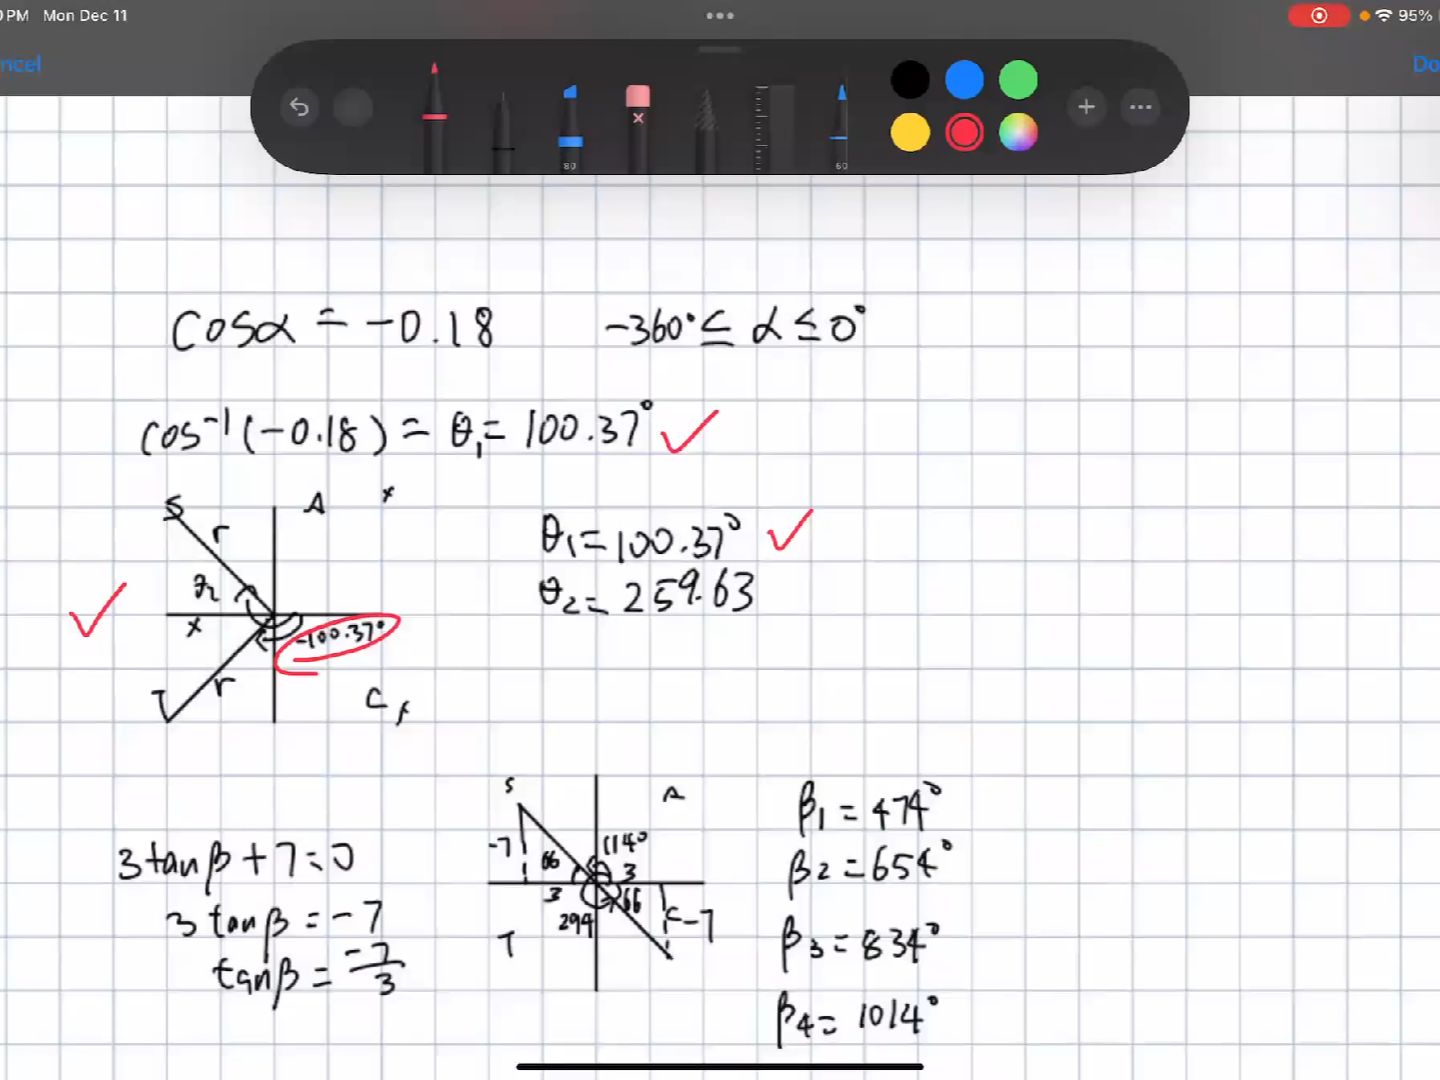 PM Mon Dec 11
95%
ncel
Do
80
60
cosα = -0.18 -360° ≤ α ≤ 0°
cos⁻¹(-0.18) = θ₁ = 100.37°
S A x
r
θ₂
x
-100.37°
r
T C
θ₁ = 100.37°
θ₂ = 259.63
3tanβ + 7 = 0
3tanβ = -7
tanβ = -7/3
S A
-7 66 114°
3
3 66
294 C -7
T
β₁ = 474°
β₂ = 654°
β₃ = 834°
β₄ = 1014°